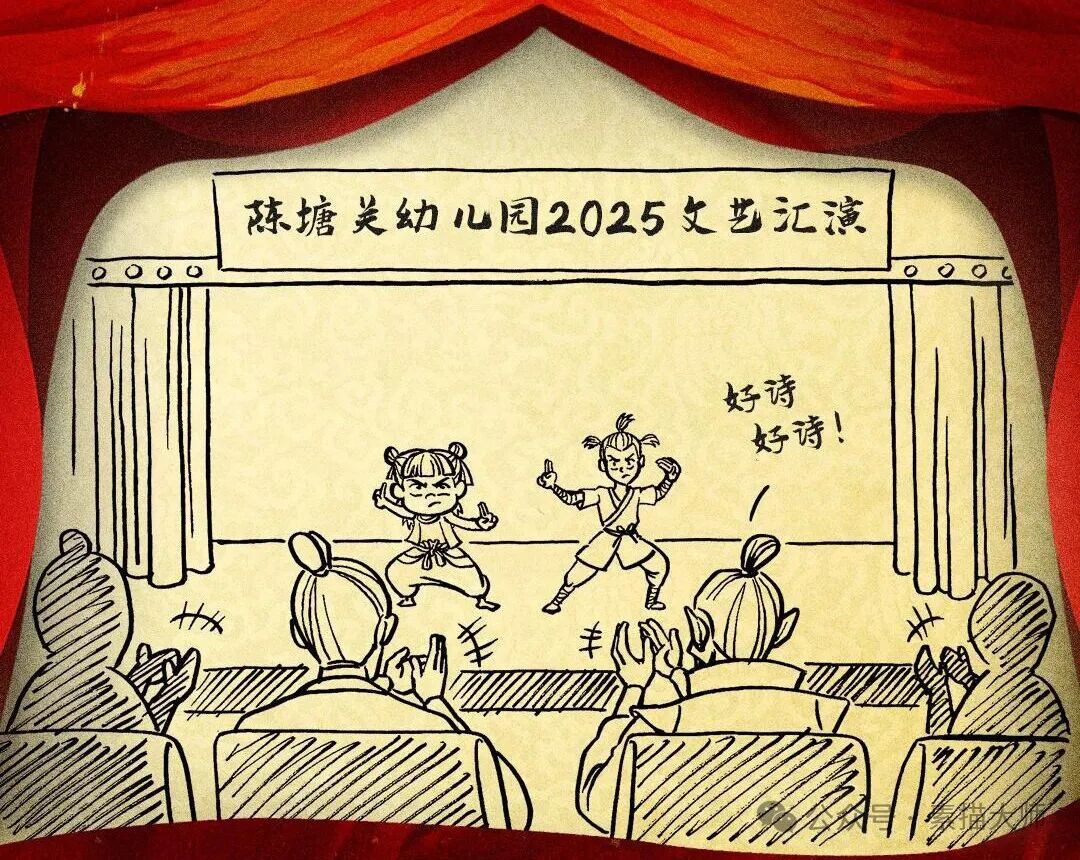 陈塘关幼儿园2025文艺汇演
好诗
好诗！
公众号 · 素描大师